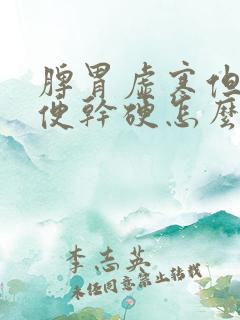 脾胃虛寒但
便幹硬怎麼
李志英
未经同意禁止转载